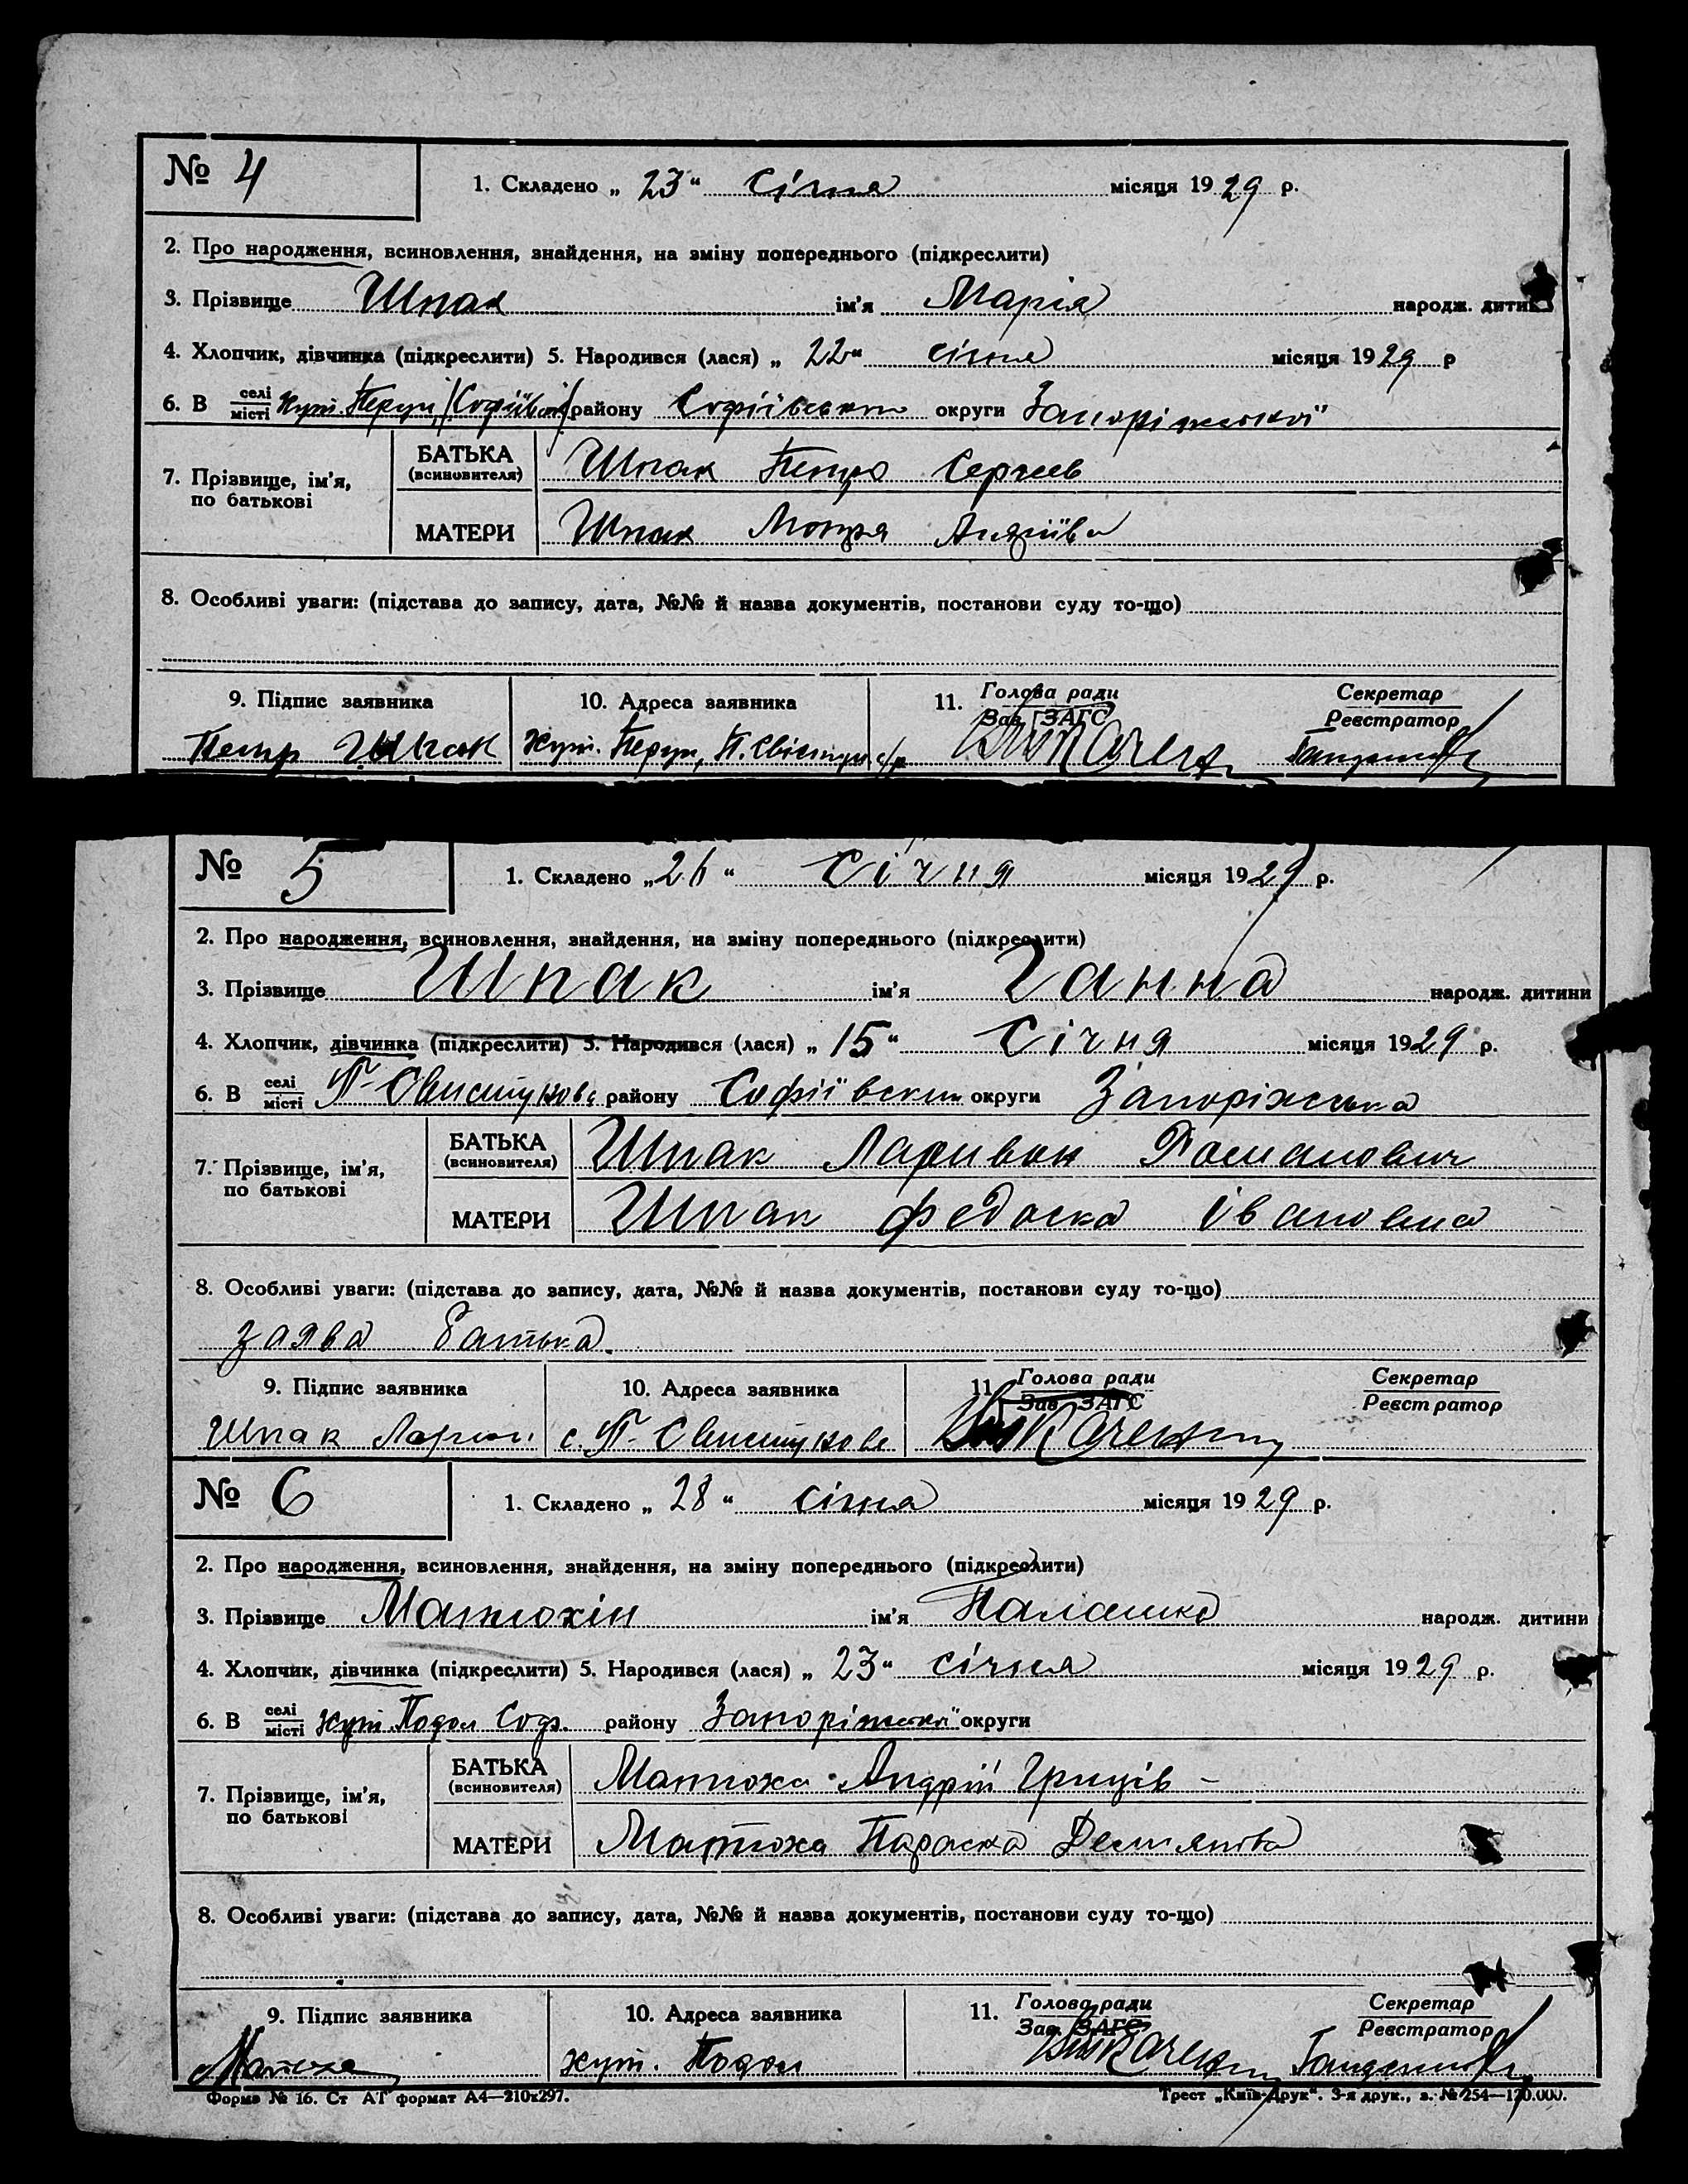 № 4 1. Складено „ 23 “ Січня місяця 1929 р.
2. Про народження, всиновлення, знайдення, на зміну попереднього (підкреслити)
3. Прізвище Шпак ім’я Марія народж. дитини
4. Хлопчик, дівчинка (підкреслити) 5. Народився (лася) „ 22 “ січня місяця 1929 р
6. В селі/місті Хут. Перун /Софіївськ/ району Софіївського округи Запоріжської
7. Прізвище, ім’я, по батькові
БАТЬКА (всиновителя) Шпак Петро Сергеев
МАТЕРИ Шпак Мотря Андріівна
8. Особливі уваги: (підстава до запису, дата, №№ й назва документів, постанови суду то-що)
9. Підпис заявника 10. Адреса заявника 11. Голова ради Секретар
Зав. ЗАГС Реєстратор
Петр Шпак хут. Перун, П. Свистун. с/р
№ 5 1. Складено „ 26 “ Січня місяця 1929 р.
2. Про народження, всиновлення, знайдення, на зміну попереднього (підкреслити)
3. Прізвище Шпак ім’я Ганна народж. дитини
4. Хлопчик, дівчинка (підкреслити) 5. Народився (лася) „ 15 “ Січня місяця 1929 р.
6. В селі/місті П-Свистунове району Софіївськи округи Запоріжська
7. Прізвище, ім’я, по батькові
БАТЬКА (всиновителя) Шпак Ларивон Романович
МАТЕРИ Шпак Федоска Івановна
8. Особливі уваги: (підстава до запису, дата, №№ й назва документів, постанови суду то-що)
заява батька.
9. Підпис заявника 10. Адреса заявника 11. Голова ради Секретар
Зав. ЗАГС Реєстратор
Шпак с. П-Свистунове
№ 6 1. Складено „ 28 “ січня місяця 1929 р.
2. Про народження, всиновлення, знайдення, на зміну попереднього (підкреслити)
3. Прізвище Матюхін ім’я Палашка народж. дитини
4. Хлопчик, дівчинка (підкреслити) 5. Народився (лася) „ 23 “ січня місяця 1929 р.
6. В селі/місті хут. Подол Соф. району Запоріжської округи
7. Прізвище, ім’я, по батькові
БАТЬКА (всиновителя) Матюха Андрій Гриців
МАТЕРИ Матюха Параска Демянова
8. Особливі уваги: (підстава до запису, дата, №№ й назва документів, постанови суду то-що)
9. Підпис заявника 10. Адреса заявника 11. Голова ради Секретар
Зав. ЗАГС Реєстратор
Матюха хут. Подол
Форма № 16. Ст АТ формат А4—210х297. Трест „Київ-Друк“. 3-я друк., з. № 254—120.000.